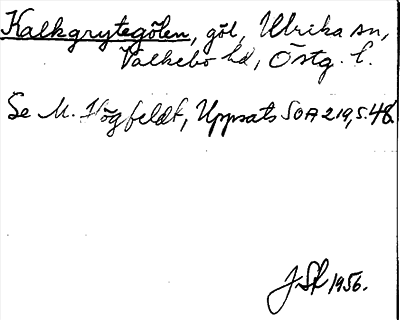 Kalkgrytegölen, göl, Ulrika sn,
Valkebo hd, Östg. l.
Se M. Högfeldt, Uppsats SOA 219, s. 48
JSt 1956.